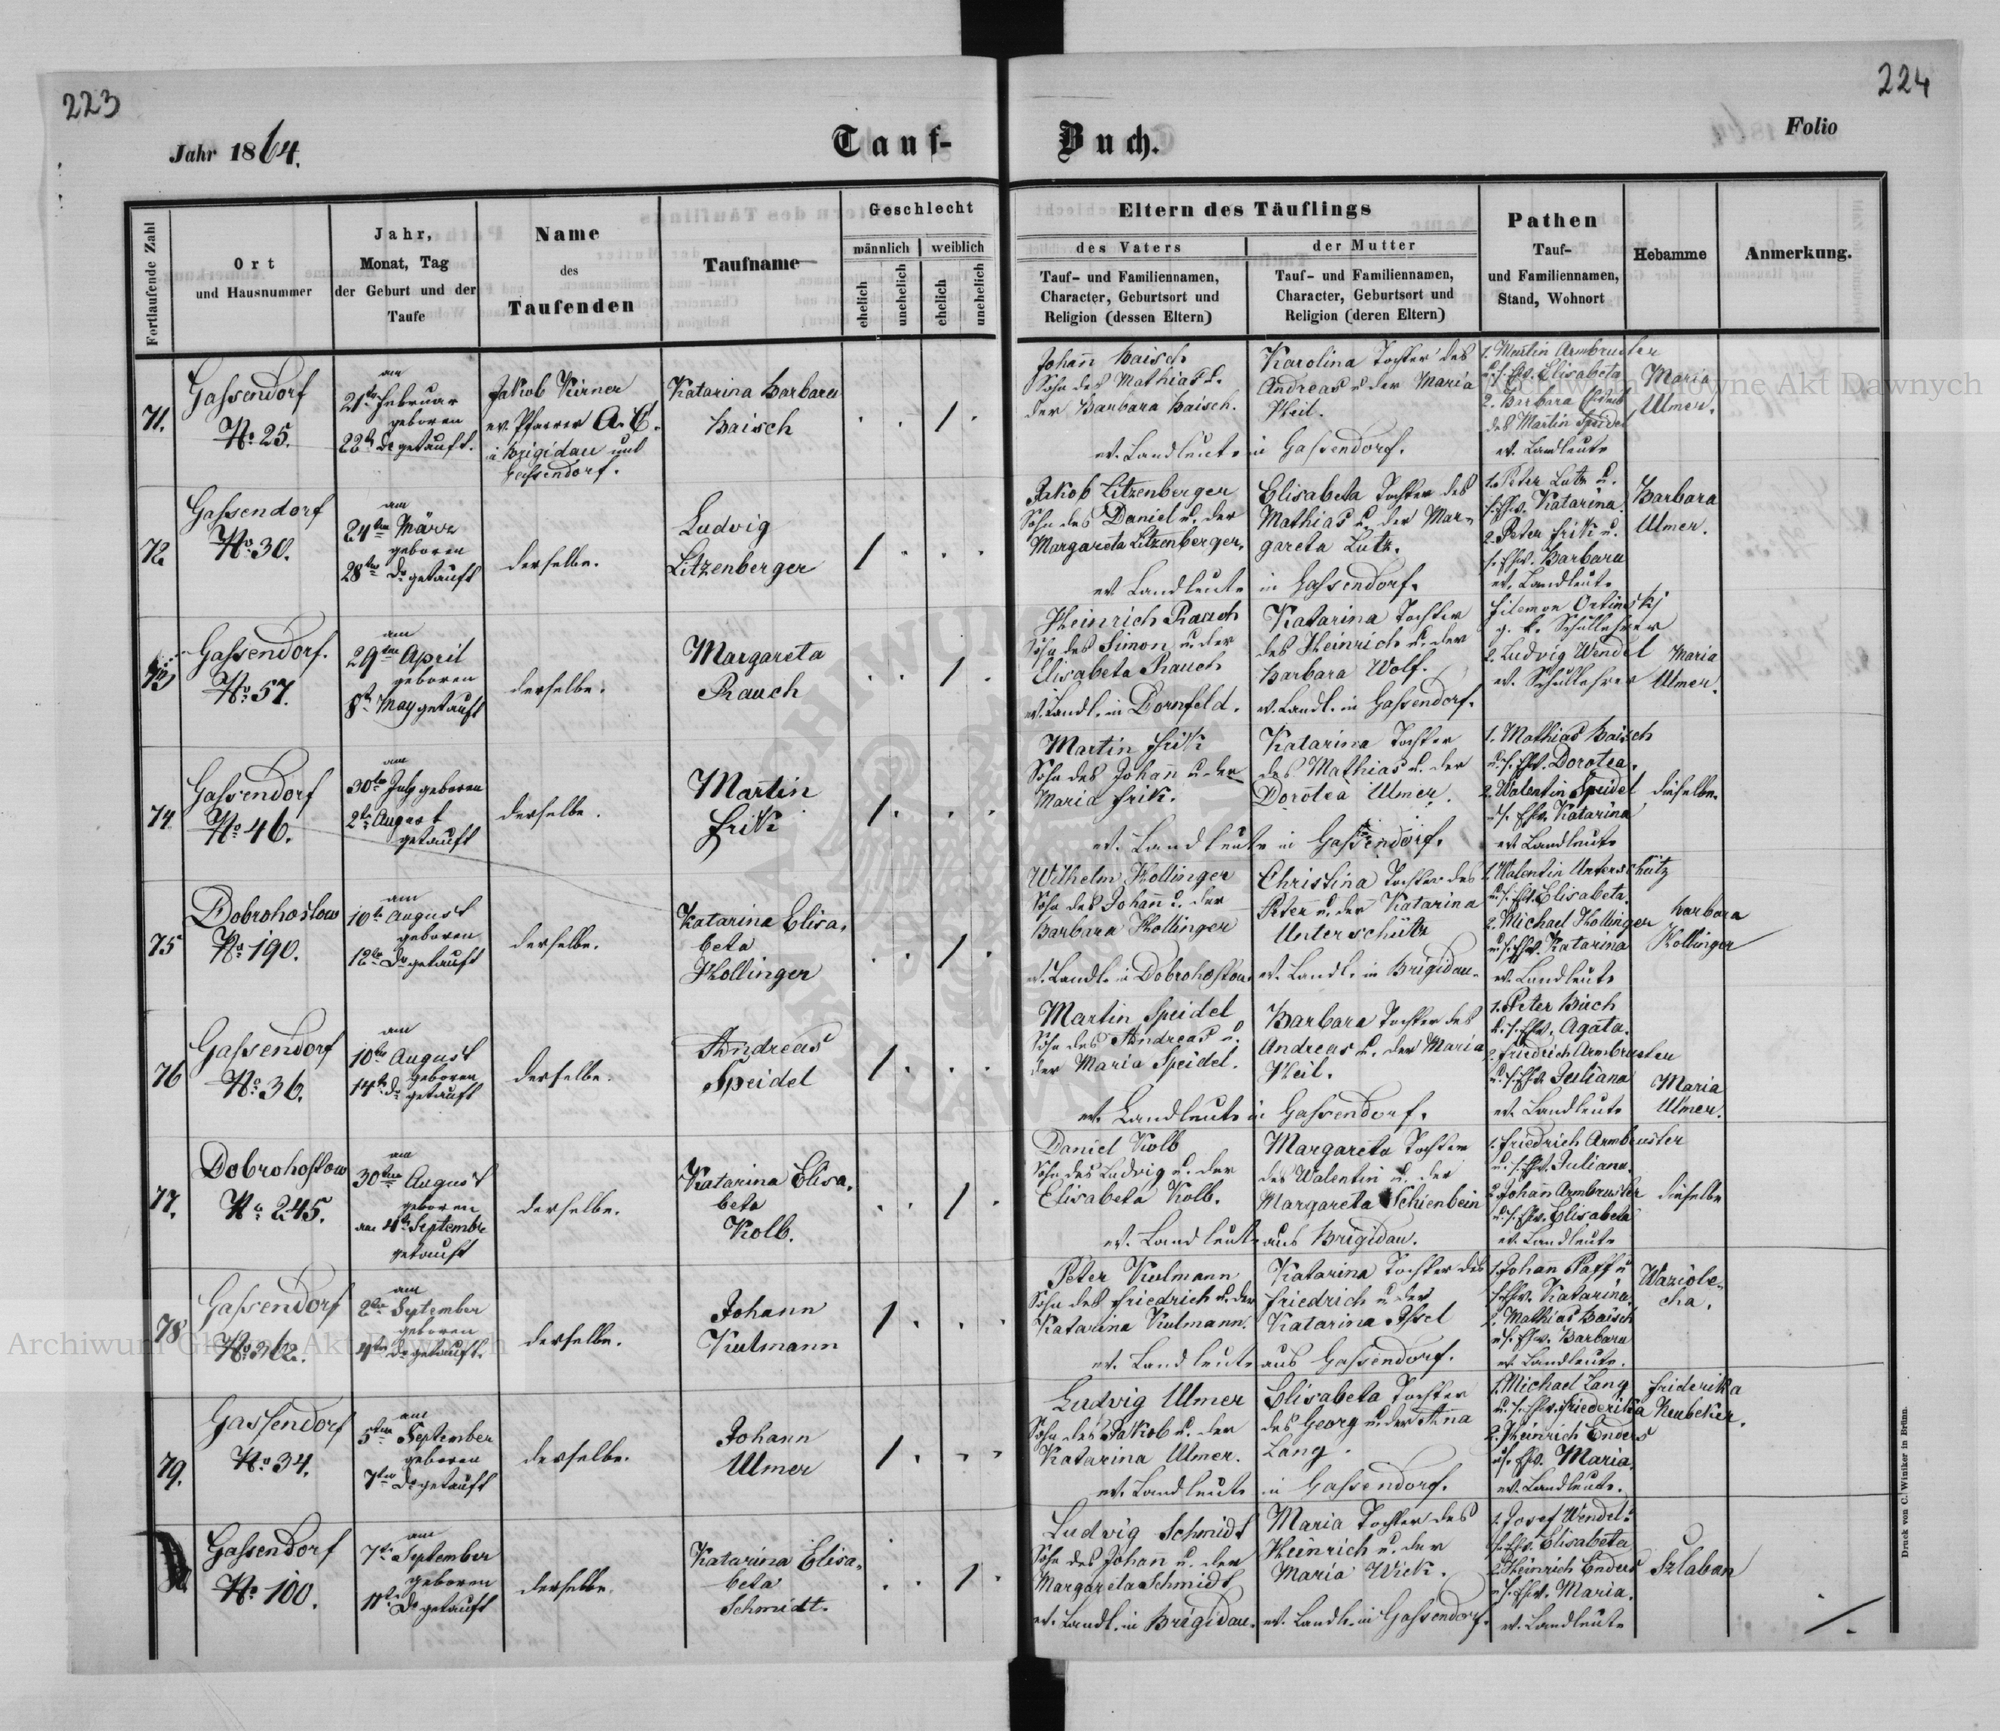 223
224
Jahr 1864.
Tauf-
Buch.
Folio
Fortlaufende Zahl
Ort
und Hausnummer
Jahr,
Monat, Tag
der Geburt und der
Taufe
Name
des
Taufenden
Taufname
Geschlecht
männlich
weiblich
ehelich
unehelich
ehelich
unehelich
Eltern des Täuflings
des Vaters
der Mutter
Tauf- und Familiennamen,
Character, Geburtsort und
Religion (dessen Eltern)
Tauf- und Familiennamen,
Character, Geburtsort und
Religion (deren Eltern)
Pathen
Tauf-
und Familiennamen,
Stand, Wohnort
Hebamme
Anmerkung.
71.
Gassendorf
No 25.
am
21ten Februar
geboren
22ten do getauft.
Jakob Kirner
ev. Pfarrer A. C.
in Brigidau und
Gassendorf.
Katarina Barbara
Baisch
Johann Baisch
Sohn des Mathias u.
der Barbara Baisch.
Karolina Tochter des
Andreas u. der Maria
Heil.
ev. Landleute in Gassendorf.
1. Martin Armbruster
u. s. Ehw. Elisabeta
2. Barbara
des Martin Speidel
ev. Landleute
Maria
Ulmer.
72.
Gassendorf
No 30.
am
24ten März
geboren
28ten do getauft
derselbe.
Ludvig
Litzenberger
Jakob Litzenberger
Sohn des Daniel u. der
Margareta Litzenberger.
Elisabeta Tochter des
Mathias u. der Mar-
gareta Lutz.
ev. Landleute in Gassendorf.
1. Peter Lutz u.
s. Ehw. Katarina.
2. Peter Frik u.
s. Ehw. Barbara
ev. Landleute
Barbara
Ulmer.
73
Gassendorf.
No 57.
am
29ten April
geboren
8ten May getauft
derselbe.
Margareta
Rauch
Heinrich Rauch
Sohn des Simon u. der
Elisabeta Rauch
ev. Landl. in Dornfeld.
Katarina Tochter
des Heinrich u. der
Barbara Wolf.
ev. Landl. in Gassendorf.
Filemon Ortinskj
g. k. Schullehrer
2. Ludvig Wendel
ev. Schullehrer
Maria
Ulmer.
74
Gassendorf
No 46.
am
30ten July geboren
2ten August
getauft
derselbe.
Martin
Frik
Martin Frik
Sohn des Johann u. der
Maria Frik.
Katarina Tochter
des Mathias u. der
Dorotea Ulmer.
ev. Landleute in Gassendorf.
1. Mathias Baisch
u. s. Ehw. Dorotea.
2. Valentin Speidel
u. s. Ehw. Katarina
ev. Landleute
dieselbe.
75
Dobrohostow
No 190.
am
10ten August
geboren
12ten do getauft
derselbe.
Katarina Elisa-
beta
Hollinger
Wilhelm Hollinger
Sohn des Johann u. der
Barbara Hollinger
ev. Landl. in Dobrohostow.
Christina Tochter des
Peter u. der Katarina
Unterschütz
ev. Landl. in Brigidau.
1. Valentin Unterschütz
u. s. Ehw. Elisabeta.
2. Michael Hollinger
u. s. Ehw. Katarina
ev. Landleute
Barbara
Hollinger
76
Gassendorf
No 36.
am
10ten August
geboren
14ten do getauft
derselbe.
Andreas
Speidel
Martin Speidel
Sohn des Andreas u.
der Maria Speidel.
Barbara Tochter des
Andreas u. der Maria
Heil.
ev. Landleute in Gassendorf.
1. Peter Büch
u. s. Ehw. Agata.
2. Friedrich Armbruster
u. s. Ehw. Juliana
ev. Landleute
Maria
Ulmer.
77.
Dobrohostow
No 245.
am
30ten August
geboren
am 4ten Septembr
getauft
derselbe.
Katarina Elisa-
beta
Kolb.
Daniel Kolb
Sohn des Ludvig u. der
Elisabeta Kolb.
Margareta Tochter
des Valentin u. der
Margareta Schienbein
ev. Landleute aus Brigidau.
1. Friedrich Armbruster
u. s. Ehw. Juliana.
2. Johann Armbruster
u. s. Ehw. Elisabeta
ev. Landleute
dieselbe
78
Gassendorf
No 32.
am
2ten September
geboren
4ten do getauft.
derselbe.
Johann
Kulmann
Peter Kulmann
Sohn des Friedrich u. der
Katarina Kulmann.
Katarina Tochter des
Friedrich u. der
Katarina Issel
ev. Landleute aus Gassendorf.
1. Johan Paff u
s. Ehw. Katarina.
2. Mathias Baisch
u. s. Ehw. Barbara
ev. Landleute.
Waziole-
cha.
79.
Gassendorf
No 34.
am
5ten September
geboren
7ten do getauft
derselbe.
Johann
Ulmer
Ludvig Ulmer
Sohn des Jakob u. der
Katarina Ulmer.
Elisabeta Tochter
des Georg u. der Anna
Lang.
ev. Landleute in Gassendorf.
1. Michael Lang
u. s. Ehw. Friederika
2. Heinrich Enders
u. s. Ehw. Maria.
ev. Landleute.
Friderika
Neubeker.
Gassendorf
No 100.
am
7ten September
geboren
11ten do getauft
derselbe.
Katarina Elisa-
beta
Schmidt.
Ludvig Schmidt
Sohn des Johann u. der
Margareta Schmidt
ev. Landl. in Brigidau.
Maria Tochter des
Heinrich u. der
Maria Wick.
ev. Landl. in Gassendorf.
1. Josef Wendel u.
s. Ehw. Elisabeta
2. Heinrich Enders
u. s. Ehw. Maria.
ev. Landleute
Szlaban
Druck von C. Winiker in Brünn.
Archiwum Główne Akt Dawnych
Archiwum Główne Akt Dawnych